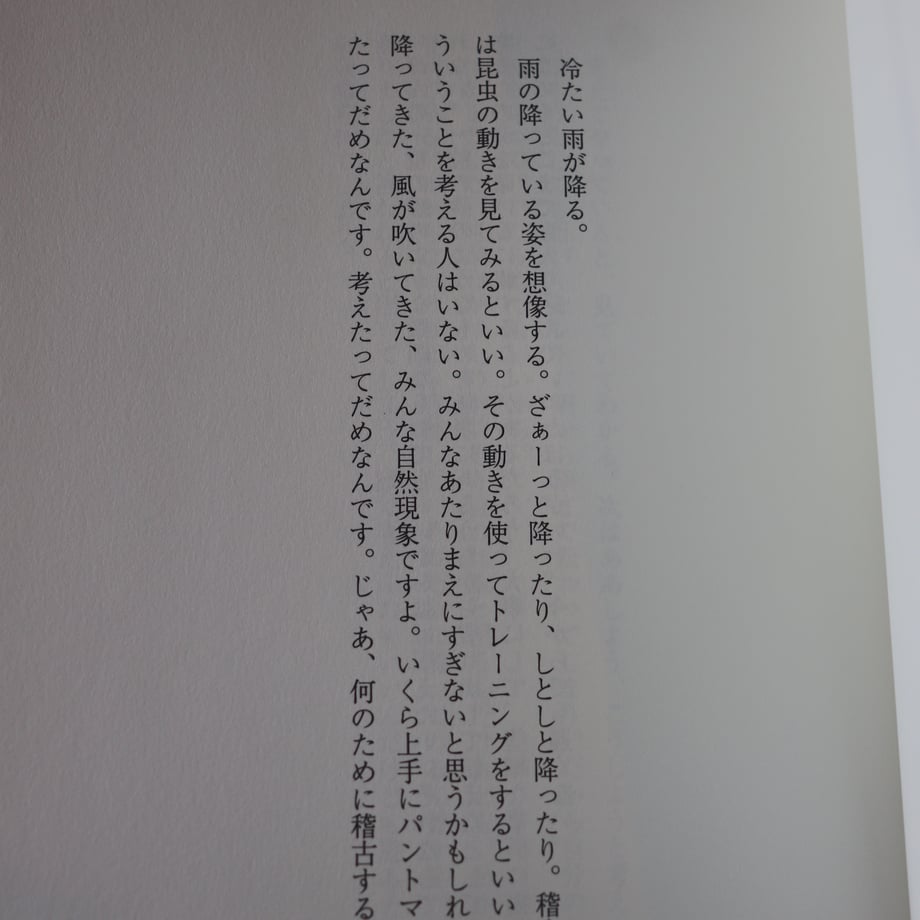 冷たい雨が降る。
雨の降っている姿を想像する。ざぁーっと降ったり、しとしと降ったり。稽
は昆虫の動きを見てみるといい。その動きを使ってトレーニングをするといい
ういうことを考える人はいない。みんなあたりまえにすぎないと思うかもしれ
降ってきた、風が吹いてきた、みんな自然現象ですよ。いくら上手にパントマ
たってだめなんです。考えたってだめなんです。じゃあ、何のために稽古する